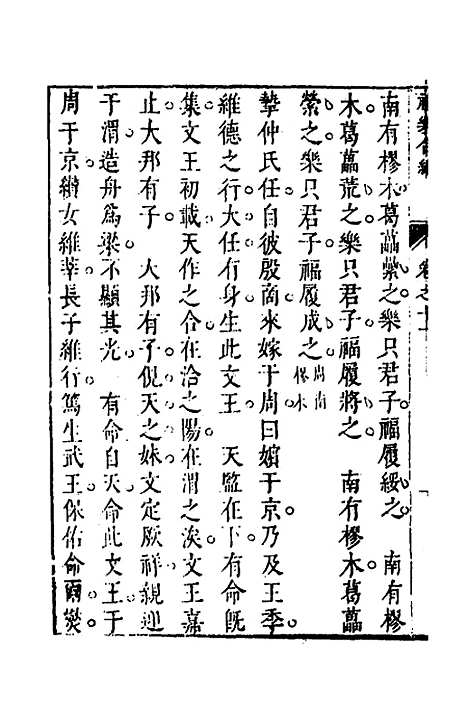 禮樂合編 卷之十
南有樛木葛藟纍之樂只君子福履綏之 南有樛
木葛藟荒之樂只君子福履將之 南有樛木葛藟
縈之樂只君子福履成之 周南樛木
摯仲氏任自彼殷商來嫁于周曰嬪于京乃及王季
維德之行大任有身生此文王 天監在下有命旣
集文王初載天作之合在洽之陽在渭之涘文王嘉
止大邦有子 大邦有子俔天之妹文定厥祥親迎
于渭造舟爲梁不顯其光 有命自天命此文王于
周于京纘女維莘長子維行篤生武王保佑命爾燮